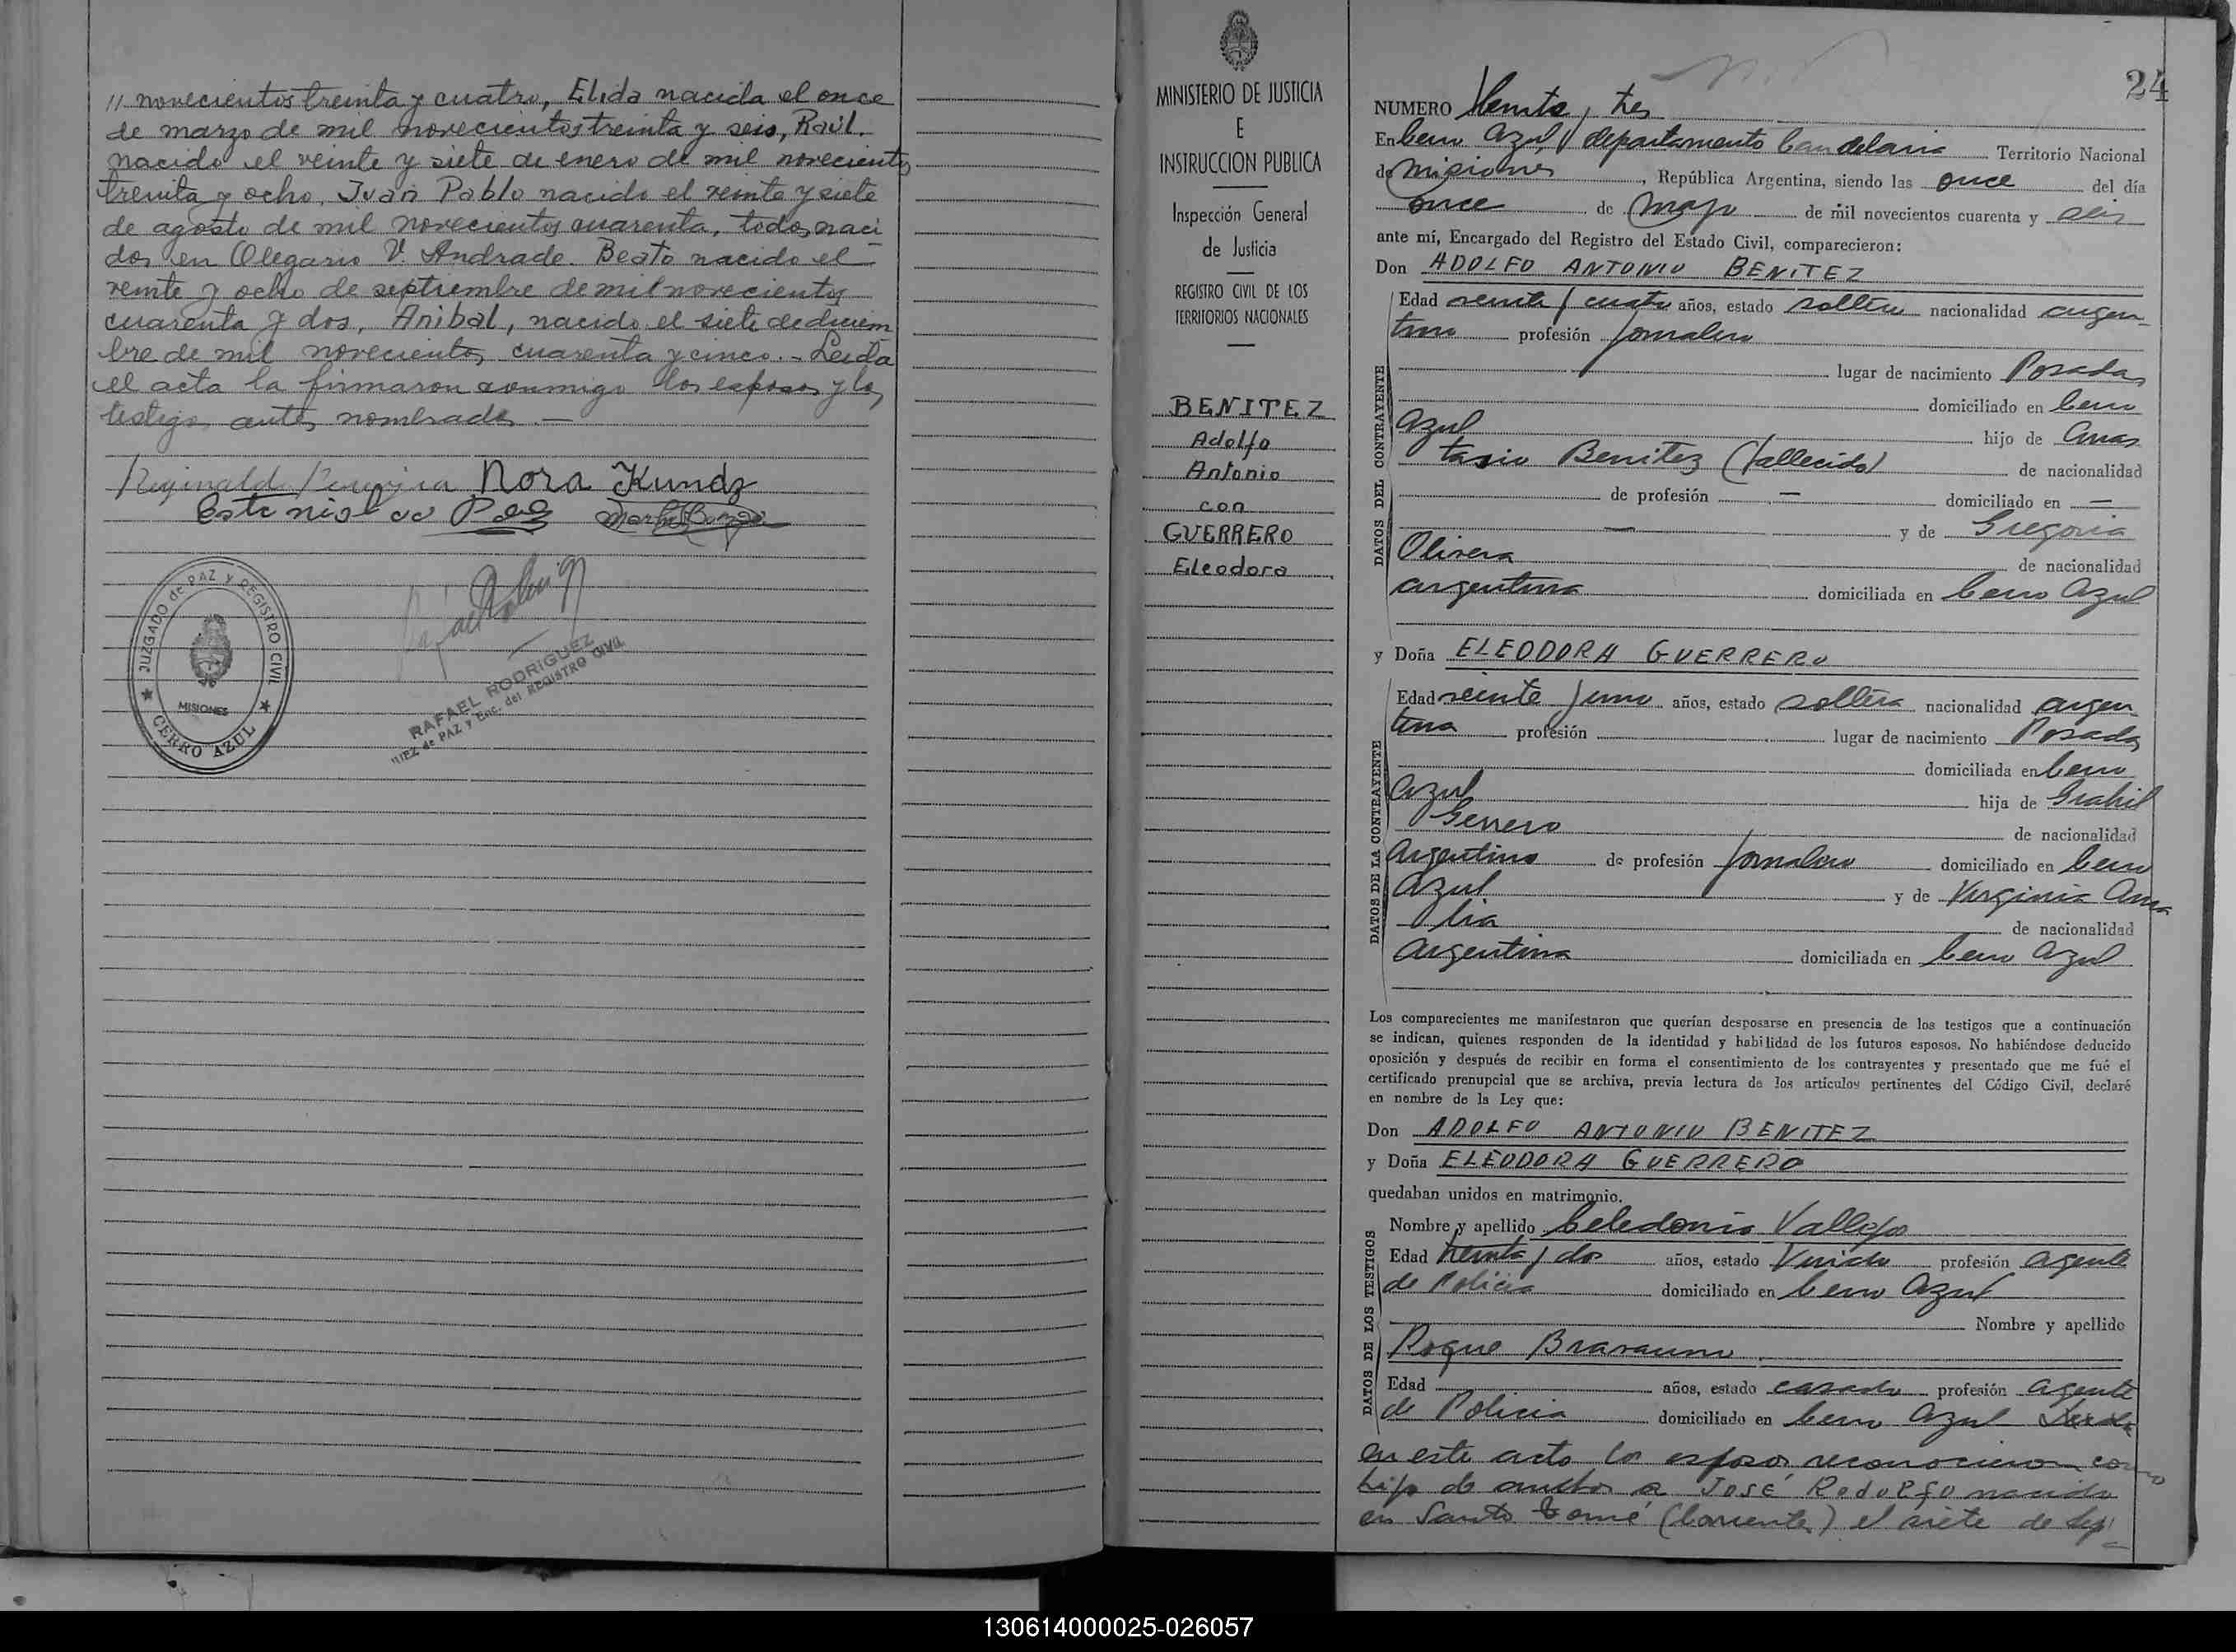 // novecientos treinta y cuatro, Elida nacida el once
de marzo de mil novecientos treinta y seis, Raúl.
nacido el veinte y siete de enero de mil novecientos
treinta y ocho, Juan Pablo nacido el veinte y siete
de agosto de mil novecientos cuarenta, todos naci
dos en Olegario V. Andrade. Beato nacido el
veinte y ocho de septiembre de mil novecientos
cuarenta y dos, Anibal, nacido el siete de diciem
bre de mil novecientos cuarenta y cinco. - Leida
el acta la firmaron conmigo los esposos y los
testigos antes nombrados. —
Reginaldo Pereira Nora Kundz
JUZGADO de PAZ Y REGISTRO CIVIL
MISIONES
CERRO AZUL
RAFAEL RODRIGUEZ
JUEZ de PAZ y Enc. del REGISTRO CIVIL
MINISTERIO DE JUSTICIA
E
INSTRUCCION PUBLICA
Inspección General
de Justicia
REGISTRO CIVIL DE LOS
TERRITORIOS NACIONALES
BENITEZ
Adolfo
Antonio
con
GUERRERO
Eleodora
24
NUMERO Veinte y tres
En Cerro Azul, departamento Candelaria Territorio Nacional
de Misiones, República Argentina, siendo las once del día
once de Mayo de mil novecientos cuarenta y seis
ante mí, Encargado del Registro del Estado Civil, comparecieron:
Don ADOLFO ANTONIO BENITEZ
DATOS DEL CONTRAYENTE
Edad veinte y cuatro años, estado soltero nacionalidad argen-
tino profesión jornalero
lugar de nacimiento Posadas
domiciliado en Cerro
Azul hijo de Anas
tasio Benitez (fallecido) de nacionalidad
de profesión — domiciliado en —
— y de Gregoria
Olivera de nacionalidad
argentina domiciliada en Cerro Azul
y Doña ELEODORA GUERRERO
DATOS DE LA CONTRAYENTE
Edad veinte y uno años, estado soltera nacionalidad argen
tina profesión lugar de nacimiento Posadas
domiciliada en Cerro
Azul hija de
de nacionalidad
Argentino de profesión jornalero domiciliado en Cerro
Azul y de Virginia
de nacionalidad
argentina domiciliada en Cerro Azul
Los comparecientes me manifestaron que querían desposarse en presencia de los testigos que a continuación
se indican, quienes responden de la identidad y habilidad de los futuros esposos. No habiéndose deducido
oposición y después de recibir en forma el consentimiento de los contrayentes y presentado que me fué el
certificado prenupcial que se archiva, previa lectura de los artículos pertinentes del Código Civil, declaré
en nombre de la Ley que:
Don ADOLFO ANTONIO BENITEZ
y Doña ELEODORA GUERRERO
quedaban unidos en matrimonio.
DATOS DE LOS TESTIGOS
Nombre y apellido Celedonio Vallejos
Edad treinta y dos años, estado Viudo profesión agente
de Policia domiciliado en Cerro Azul
Nombre y apellido
Roque
Edad años, estado casado profesión agente
de Policia domiciliado en Cerro Azul
en este acto los esposos reconocieron como
hijo de ambos a JOSÉ RODOLFO nacido
en Santo Tomé (Corrientes) el siete de sep
130614000025-026057